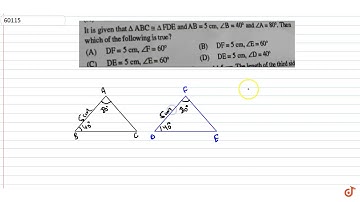 60115
It is given that Δ ABC ≅ Δ FDE and AB = 5 cm, ∠B = 40° and ∠A = 80°. Then
which of the following is true?
(A) DF = 5 cm, ∠F = 60° (B) DF = 5 cm, ∠E = 60°
(C) DE = 5 cm, ∠E = 60° (D) DE = 5 cm, ∠D = 40°
The length of the third sid
A F
5cm 80° 5cm 80°
40° 40°
B C D E